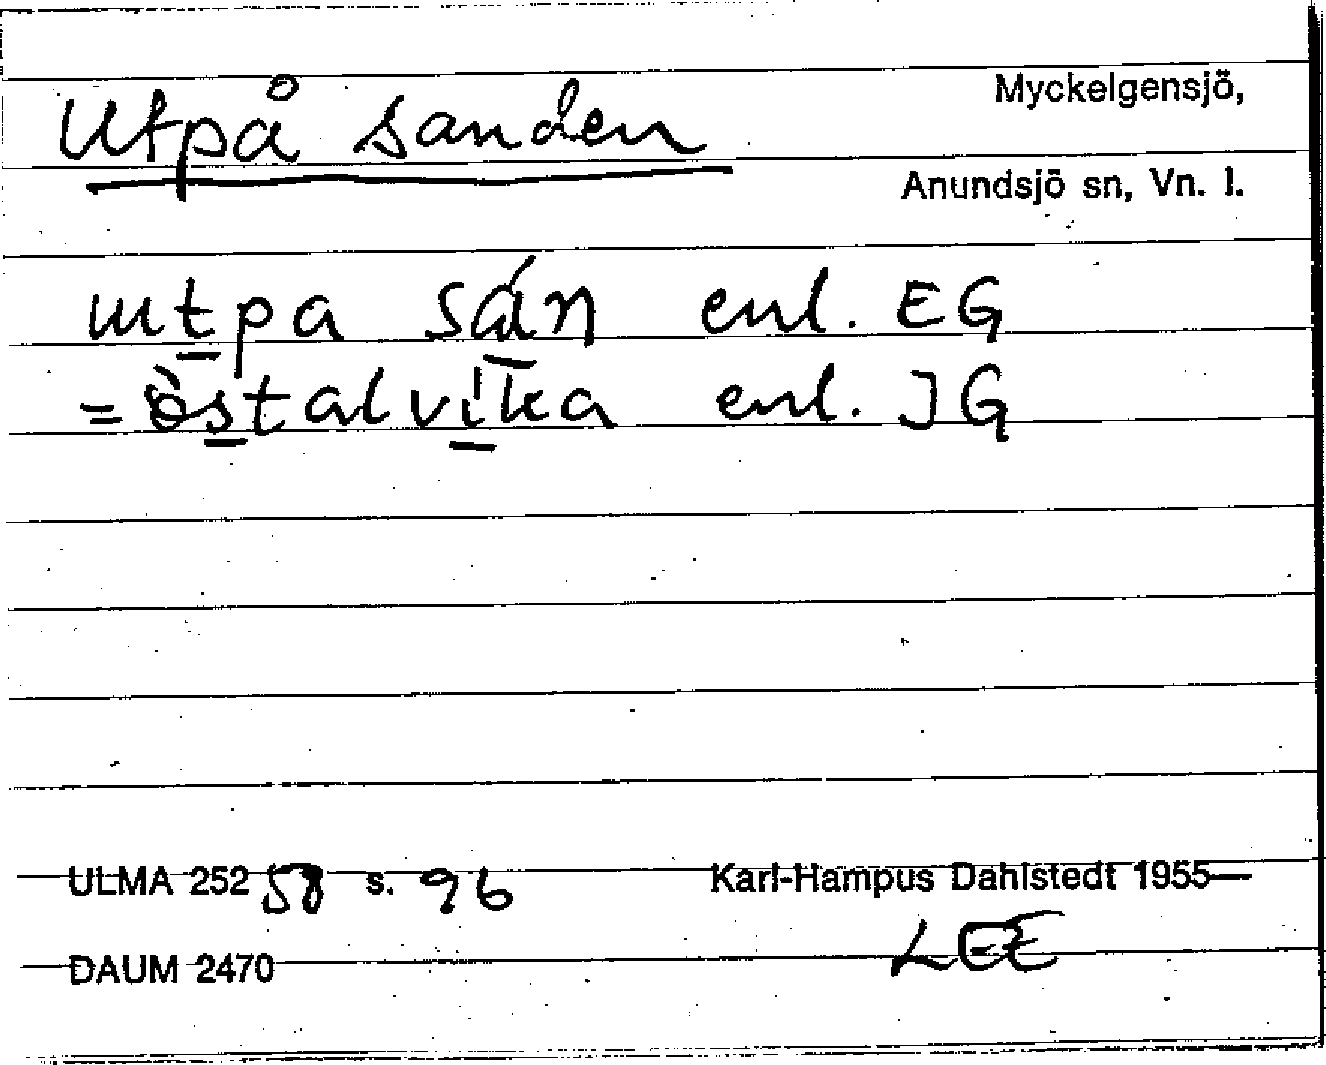 Utpå sanden
Myckelgensjö,
Anundsjö sn, Vn. l.
utpa sán enl. EG
= òstalvika enl. JG
ULMA 25258 s. 96
Karl-Hampus Dahlstedt 1955—
LEE
DAUM 2470